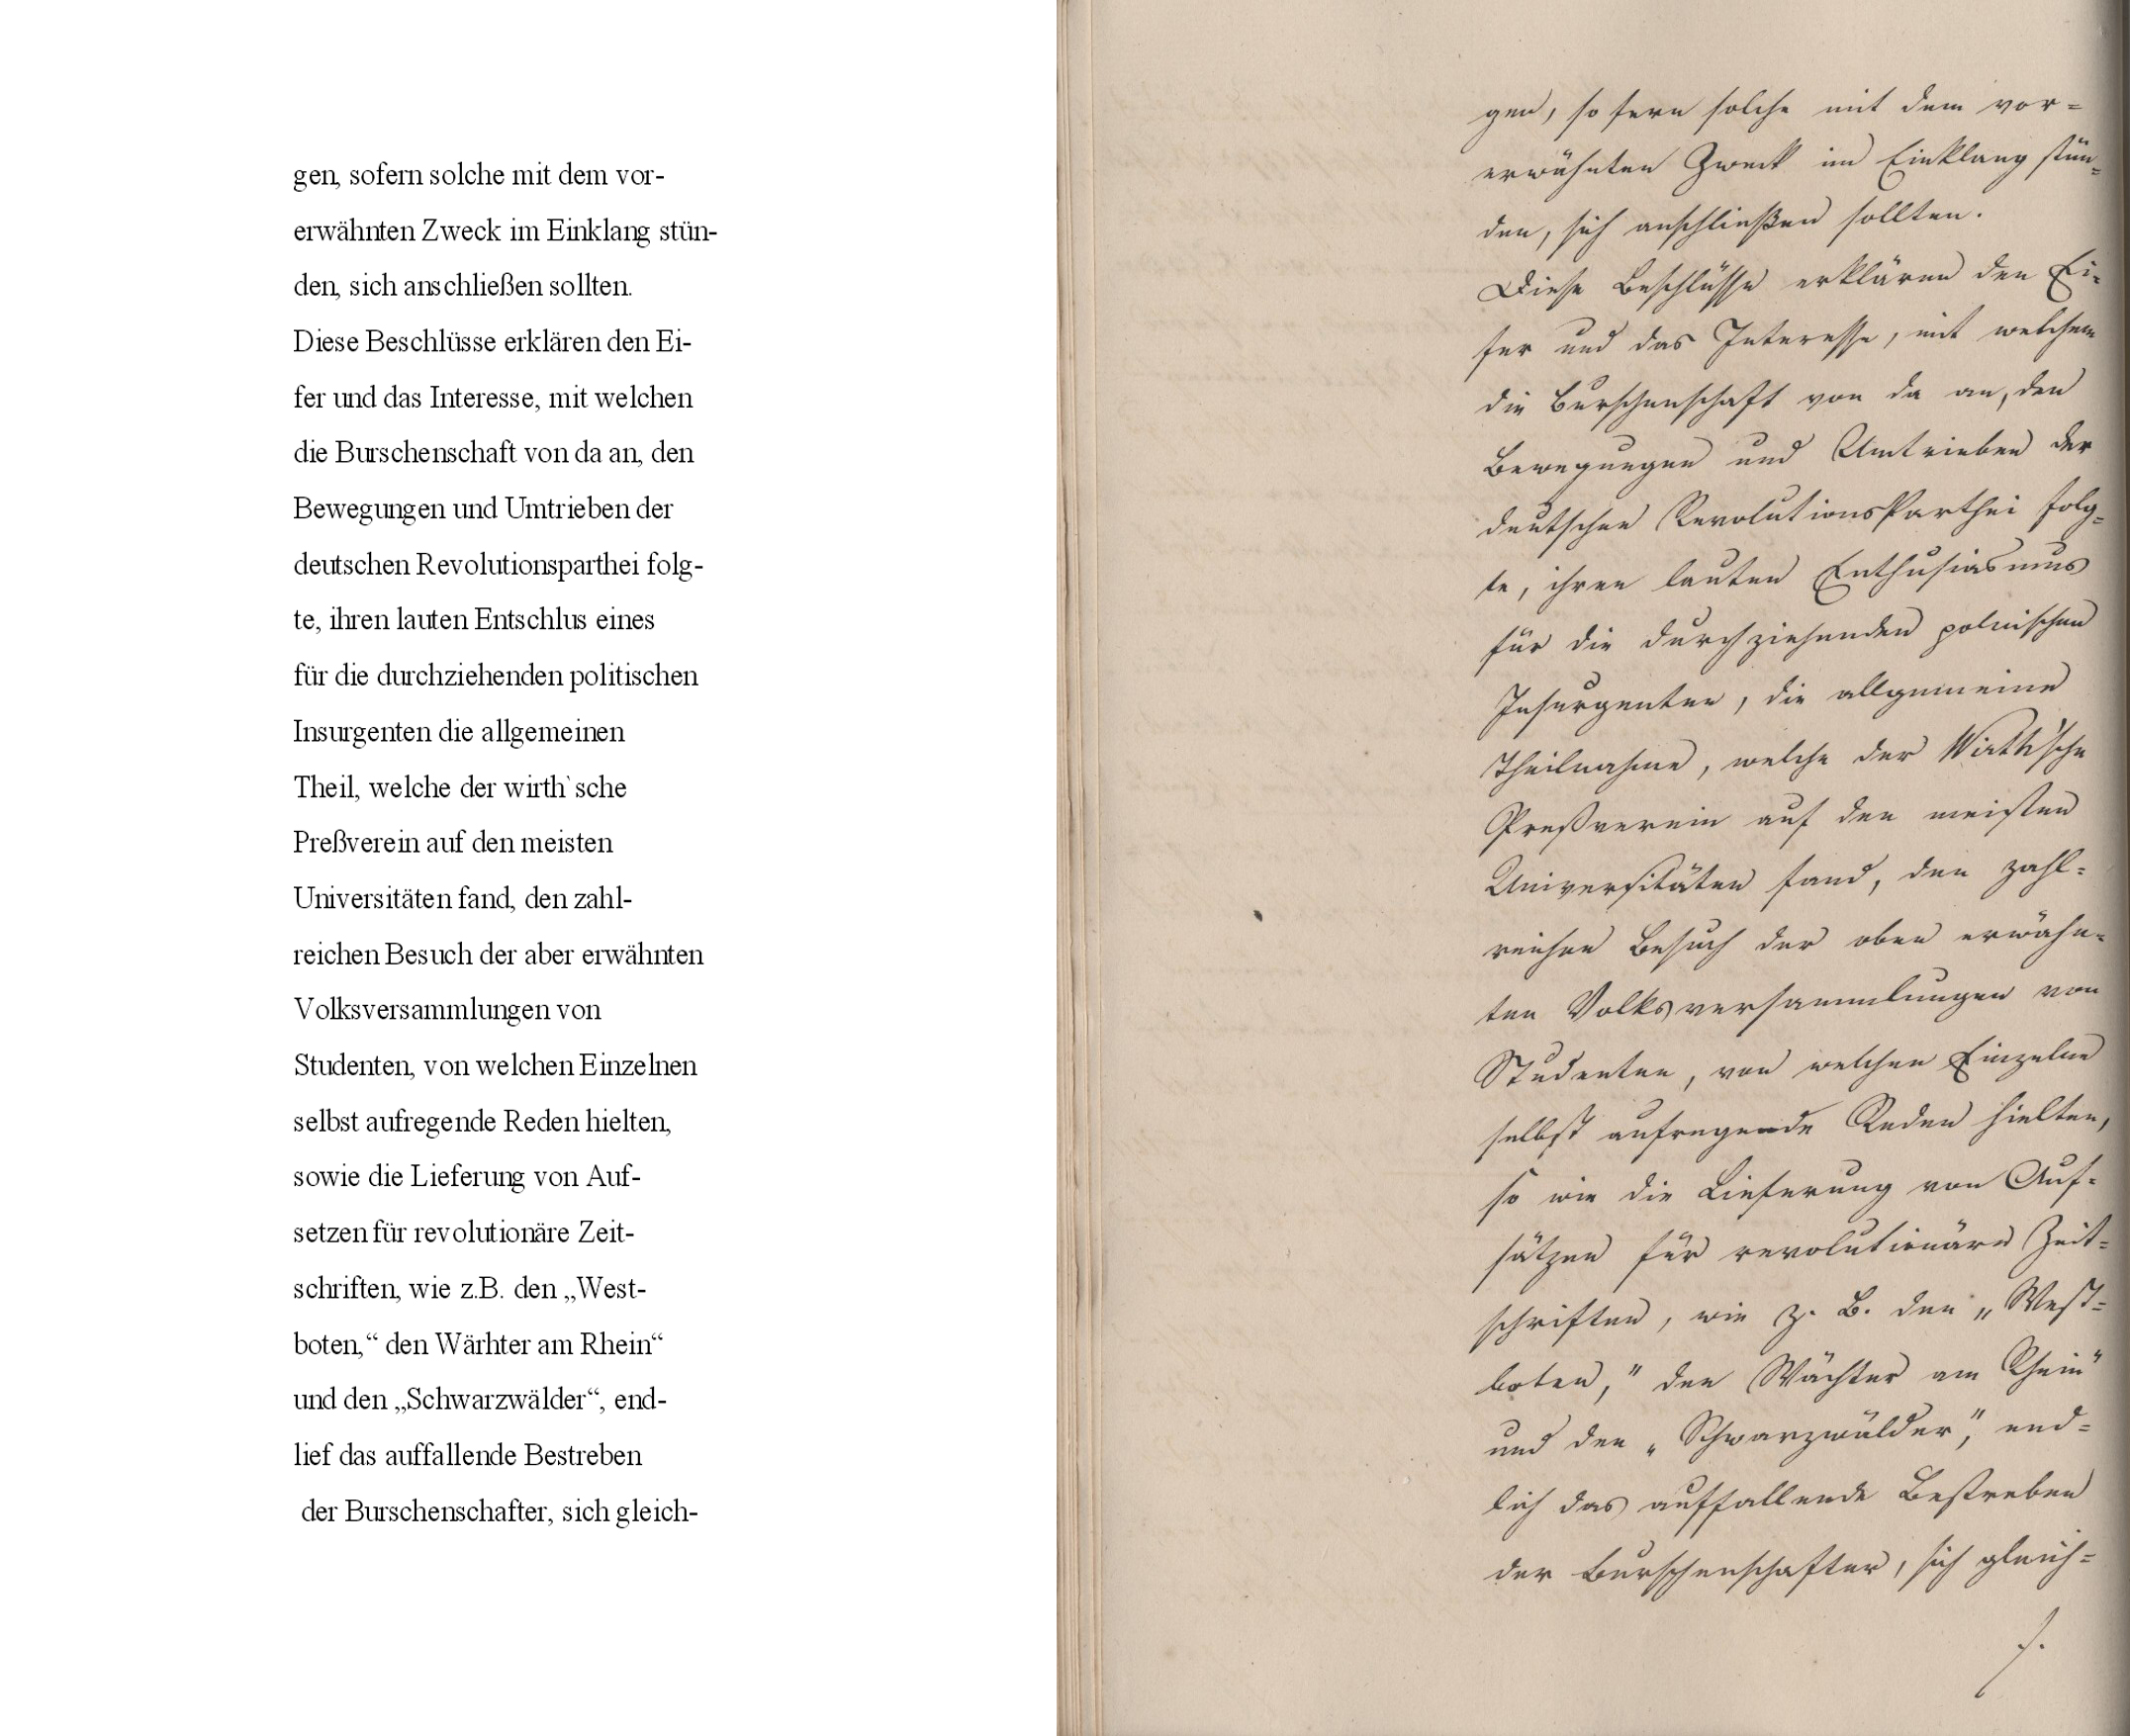 gen, sofern solche mit dem vor-
erwähnten Zweck im Einklang stün-
den, sich anschließen sollten.
Diese Beschlüsse erklären den Ei-
fer und das Interesse, mit welchen
die Burschenschaft von da an, den
Bewegungen und Umtrieben der
deutschen Revolutionsparthei folg-
te, ihren lauten Entschlus eines
für die durchziehenden politischen
Insurgenten die allgemeinen
Theil, welche der wirth`sche
Preßverein auf den meisten
Universitäten fand, den zahl-
reichen Besuch der aber erwähnten
Volksversammlungen von
Studenten, von welchen Einzelnen
selbst aufregende Reden hielten,
sowie die Lieferung von Auf-
setzen für revolutionäre Zeit-
schriften, wie z.B. den „West-
boten,“ den Wärhter am Rhein“
und den „Schwarzwälder“, end-
lief das auffallende Bestreben
der Burschenschafter, sich gleich-
gen, so fern solche mit dem vor=
erwähnten Zweck im Einklang stün=
den, sich anschließen sollten.
Diese Beschlüsse erklären den Ei=
fer und das Interesse, mit welchem
die Burschenschaft von da an, den
Bewegungen und Umtrieben der
deutschen RevolutionsParthei folg=
te, ihren lauten Enthusiasmus
für die durchziehenden polnischen
Insurgenten, die allgemeine
Theilnahme, welche der Wirth'sche
Preßverein auf den meisten
Universitäten fand, den zahl=
reichen Besuch der oben erwähn=
ten Volksversammlungen von
Studenten, von welchen Einzelne
selbst aufregende Reden hielten,
so wie die Lieferung von Auf=
sätzen für revolutionäre Zeit=
schriften, wie z. B. den „West=
boten," den Wächter am Rhein"
und den „Schwarzwälder", end=
lich das auffallende Bestreben
der Burschenschafter, sich gleich=